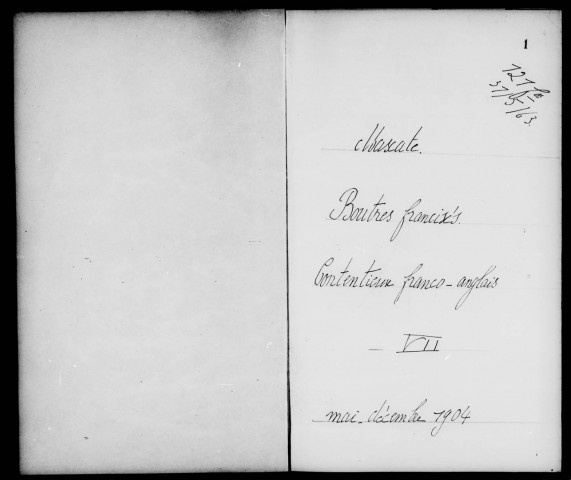 1
121 fo
31/5/63.
Mascate.
Boutres francisés.
Contentieux franco-anglais
VII
mai-décembre 1904